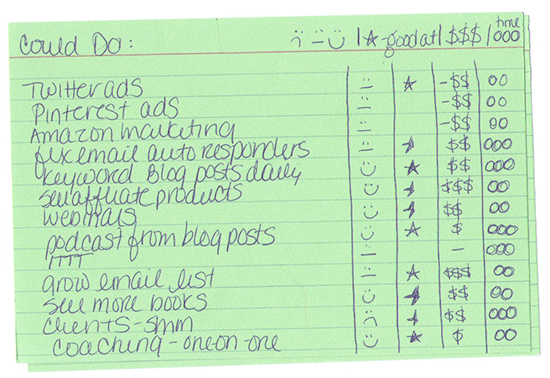 Could Do: :( :| :) | ★-good at | $$$ | time 000
Twitter ads :| ★ -$$ 00
Pinterest ads :| -$$ 00
Amazon marketing :| -$$ 00
fix email autoresponders :| ★ $$ 000
Keyword blog posts daily :) ★ $$ 000
sell affiliate products :) ★ $$$ 00
webinars :) ★ $$ 00
podcast from blog posts :) ★ $ 000
ITTT :| - 000
grow email list :| ★ $$$ 00
sell more books :) ★ $$ 00
clients - smm :( ★ $$ 000
coaching - one-on-one :) ★ $ 00